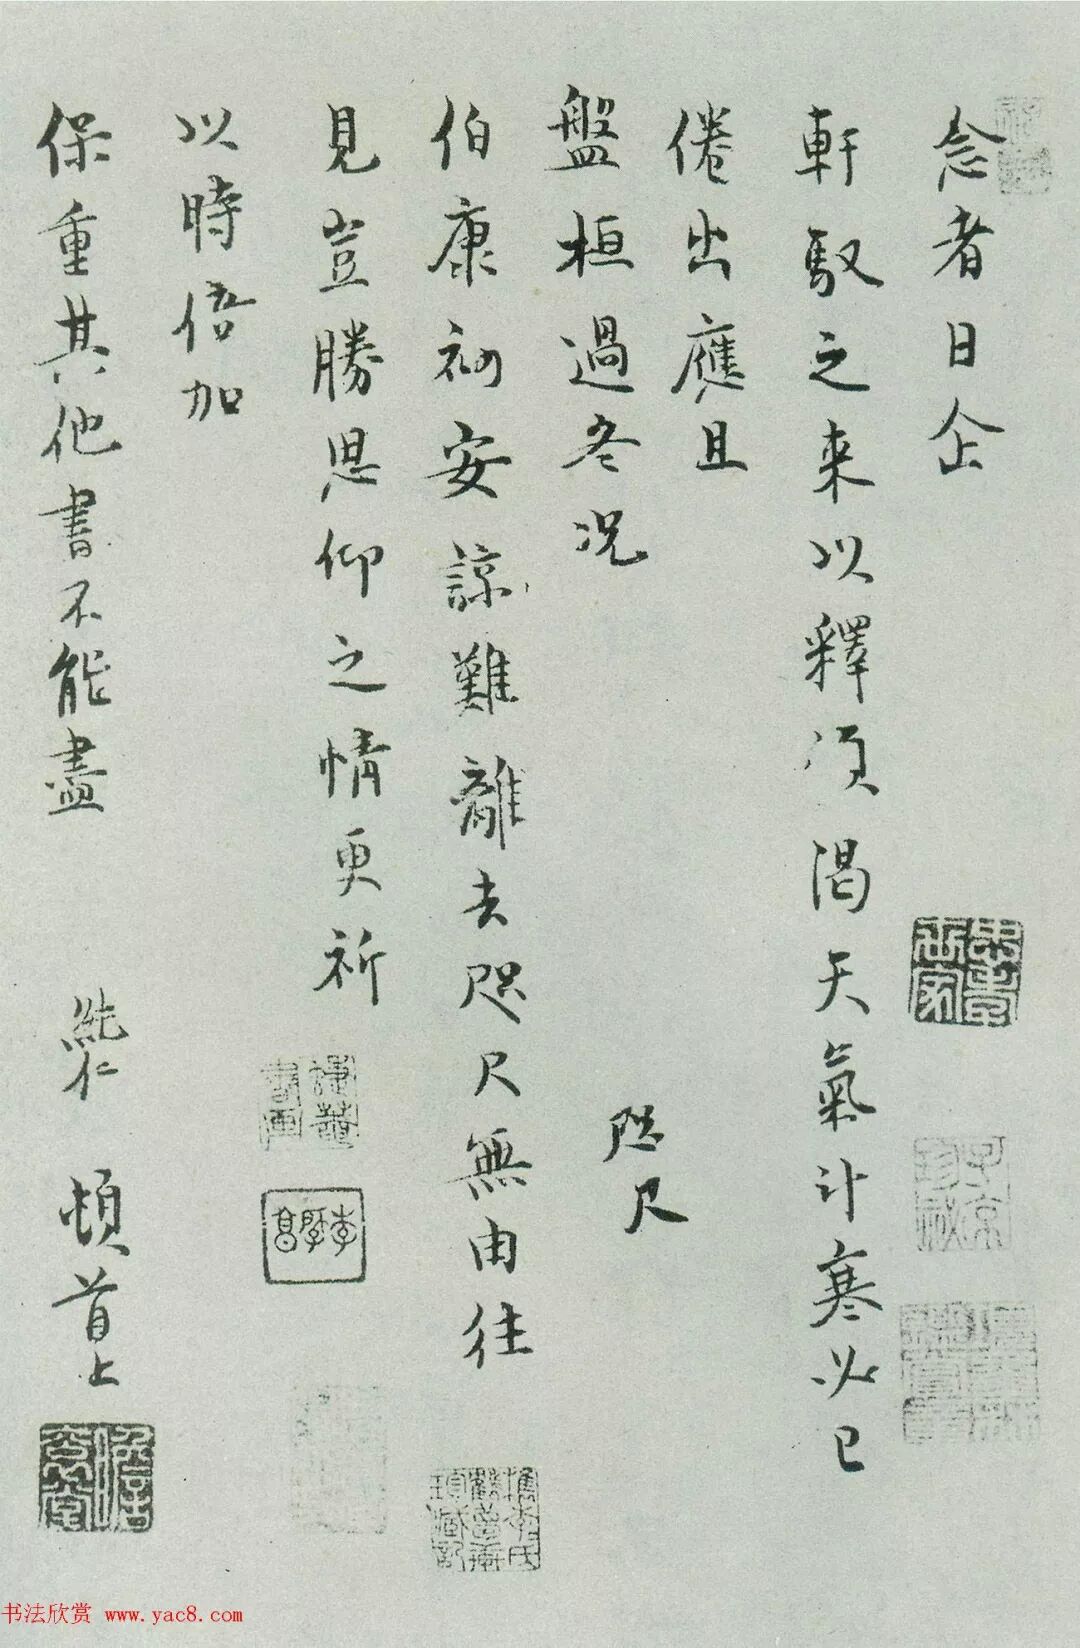 念者日企
軒馭之来以釋湏渴天氣计寒必已
倦出應且
盤桓過冬况
咫尺
伯康初安諒難離去咫尺無由往
見豈勝思仰之情更祈
以時倍加
保重其他書不能盡
頓首上
李肇亨
子京珍祕
書法欣赏 www.yac8.com